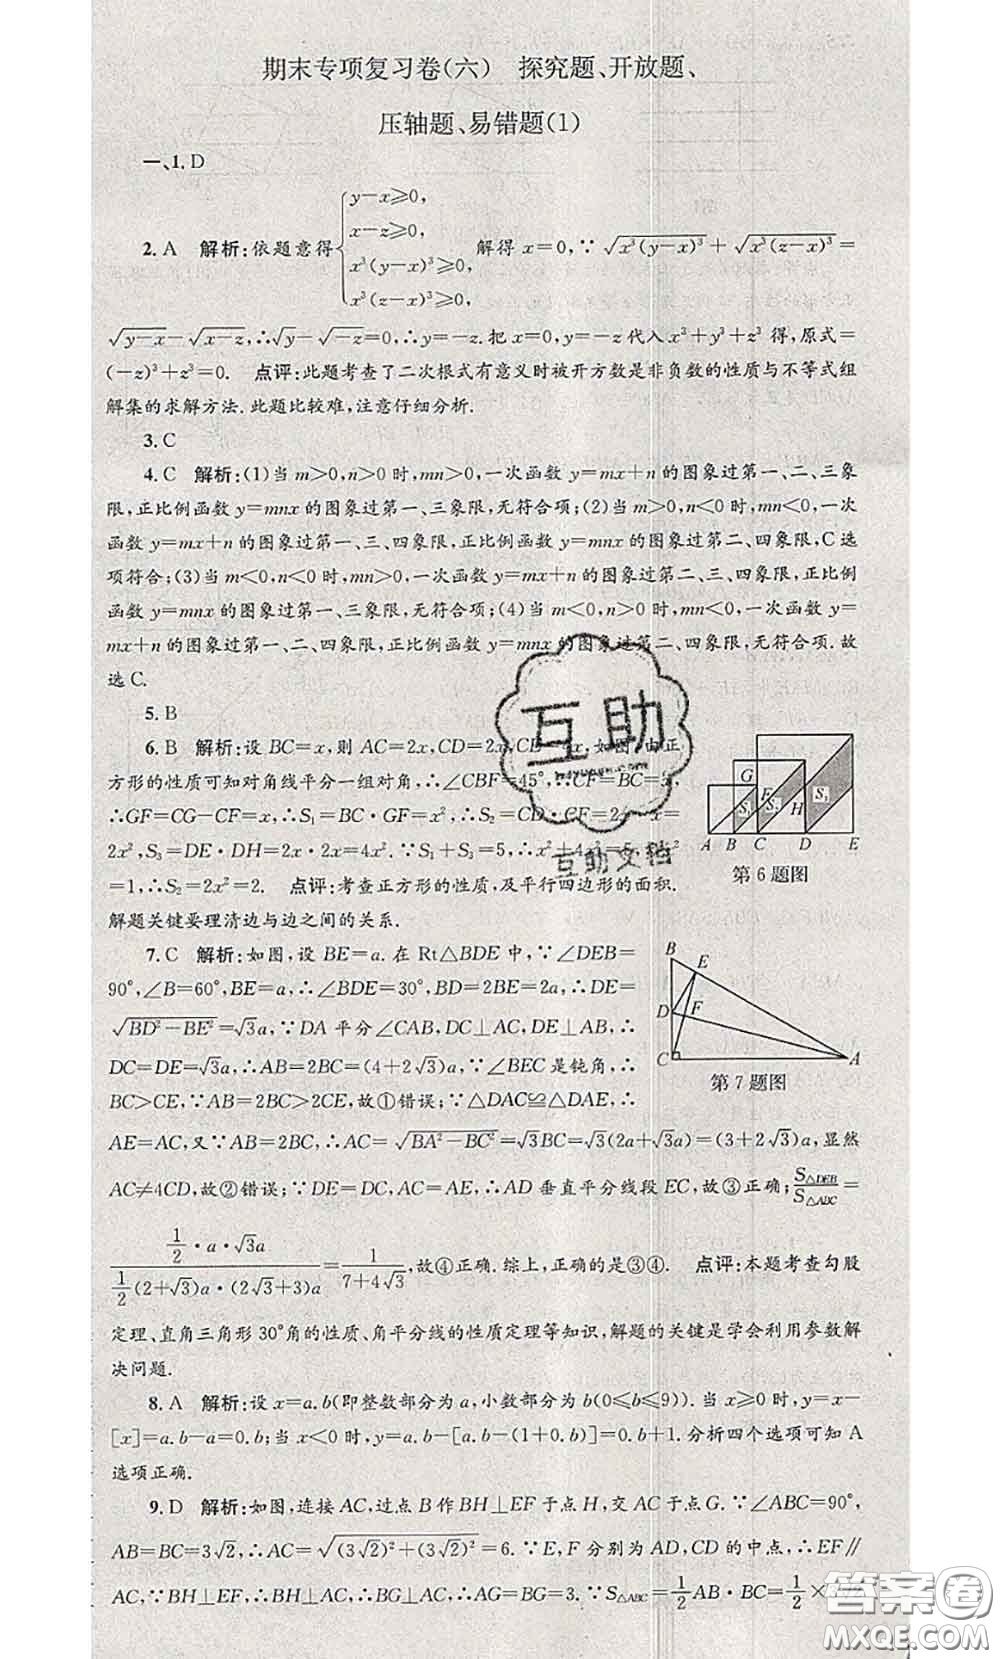 期末专项复习卷(六) 探究题、开放题、
压轴题、易错题(1)
一、1. D
2. A 解析:依题意得{y−x≥0, x−z≥0, x³(y−x)³≥0, x³(z−x)³≥0, 解得 x=0,∵√(x³(y−x)³)+√(x³(z−x)³)=
√(y−x)−√(x−z),∴√y−√(−z)=0,∴y=−z.把 x=0,y=−z 代入 x³+y³+z³ 得,原式=
(−z)³+z³=0. 点评:此题考查了二次根式有意义时被开方数是非负数的性质与不等式组
解集的求解方法.此题比较难,注意仔细分析.
3. C
4. C 解析:(1)当 m>0,n>0 时,mn>0,一次函数 y=mx+n 的图象过第一、二、三象
限,正比例函数 y=mnx 的图象过第一、三象限,无符合项;(2)当 m>0,n<0 时,mn<0,一次
函数 y=mx+n 的图象过第一、三、四象限,正比例函数 y=mnx 的图象过第二、四象限,C选
项符合;(3)当 m<0,n<0 时,mn>0,一次函数 y=mx+n 的图象过第二、三、四象限,正比例
函数 y=mnx 的图象过第一、三象限,无符合项;(4)当 m<0,n>0 时,mn<0,一次函数 y=
mx+n 的图象过第一、二、四象限,正比例函数 y=mnx 的图象过第二、四象限,无符合项.故
选C.
5. B
6. B 解析:设 BC=x,则 AC=2x,CD=2x,
方形的性质可知对角线平分一组对角,∴∠CBF=45°,∴CF=BC=
∴GF=CG−CF=x,∴S₁=BC·GF=x²,∴S₂=CD·CF=2x·x=
2x²,S₃=DE·DH=2x·2x=4x².∵S₁+S₃=5,∴x²+4x²=5,∴x²
=1,∴S₂=2x²=2. 点评:考查正方形的性质,及平行四边形的面积.
解题关键要理清边与边之间的关系.
G F H S₁ S₂ S₃
A B C D E
第6题图
7. C 解析:如图,设 BE=a.在 Rt△BDE 中,∵∠DEB=
90°,∠B=60°,BE=a,∴∠BDE=30°,BD=2BE=2a,∴DE=
√(BD²−BE²)=√3a,∵DA 平分∠CAB,DC⊥AC,DE⊥AB,∴
DC=DE=√3a,∴AB=2BC=(4+2√3)a,∵∠BEC 是钝角,∴
BC>CE,∵AB=2BC>2CE,故①错误;∵△DAC≌△DAE,∴
B E D F C A
第7题图
AE=AC,又∵AB=2BC,∴AC=√(BA²−BC²)=√3BC=√3(2a+√3a)=(3+2√3)a,显然
AC≠4CD,故②错误;∵DE=DC,AC=AE,∴AD 垂直平分线段 EC,故③正确;S△DEB/S△ABC=
(1/2·a·√3a)/(1/2(2+√3)a·(2√3+3)a)=1/(7+4√3),故④正确.综上,正确的是③④. 点评:本题考查勾股
定理、直角三角形30°角的性质、角平分线的性质定理等知识,解题的关键是学会利用参数解
决问题.
8. A 解析:设 x=a.b(即整数部分为 a,小数部分为 b(0≤b≤9)).当 x≥0 时,y=x−
[x]=a.b−a=0.b;当 x<0 时,y=a.b−[a.b−(1+0.b)]=0.b+1.分析四个选项可知 A
选项正确.
9. D 解析:如图,连接 AC,过点 B 作 BH⊥EF 于点 H,交 AC 于点 G.∵∠ABC=90°,
AB=BC=3√2,∴AC=√((3√2)²+(3√2)²)=6.∵E,F 分别为 AD,CD 的中点,∴EF∥
AC,∵BH⊥EF,∴BH⊥AC,∴BG⊥AC,∴AG=BG=3.∵S△ABC=1/2AB·BC=1/2×
互助
互助文档
答案圈
MXQE.COM